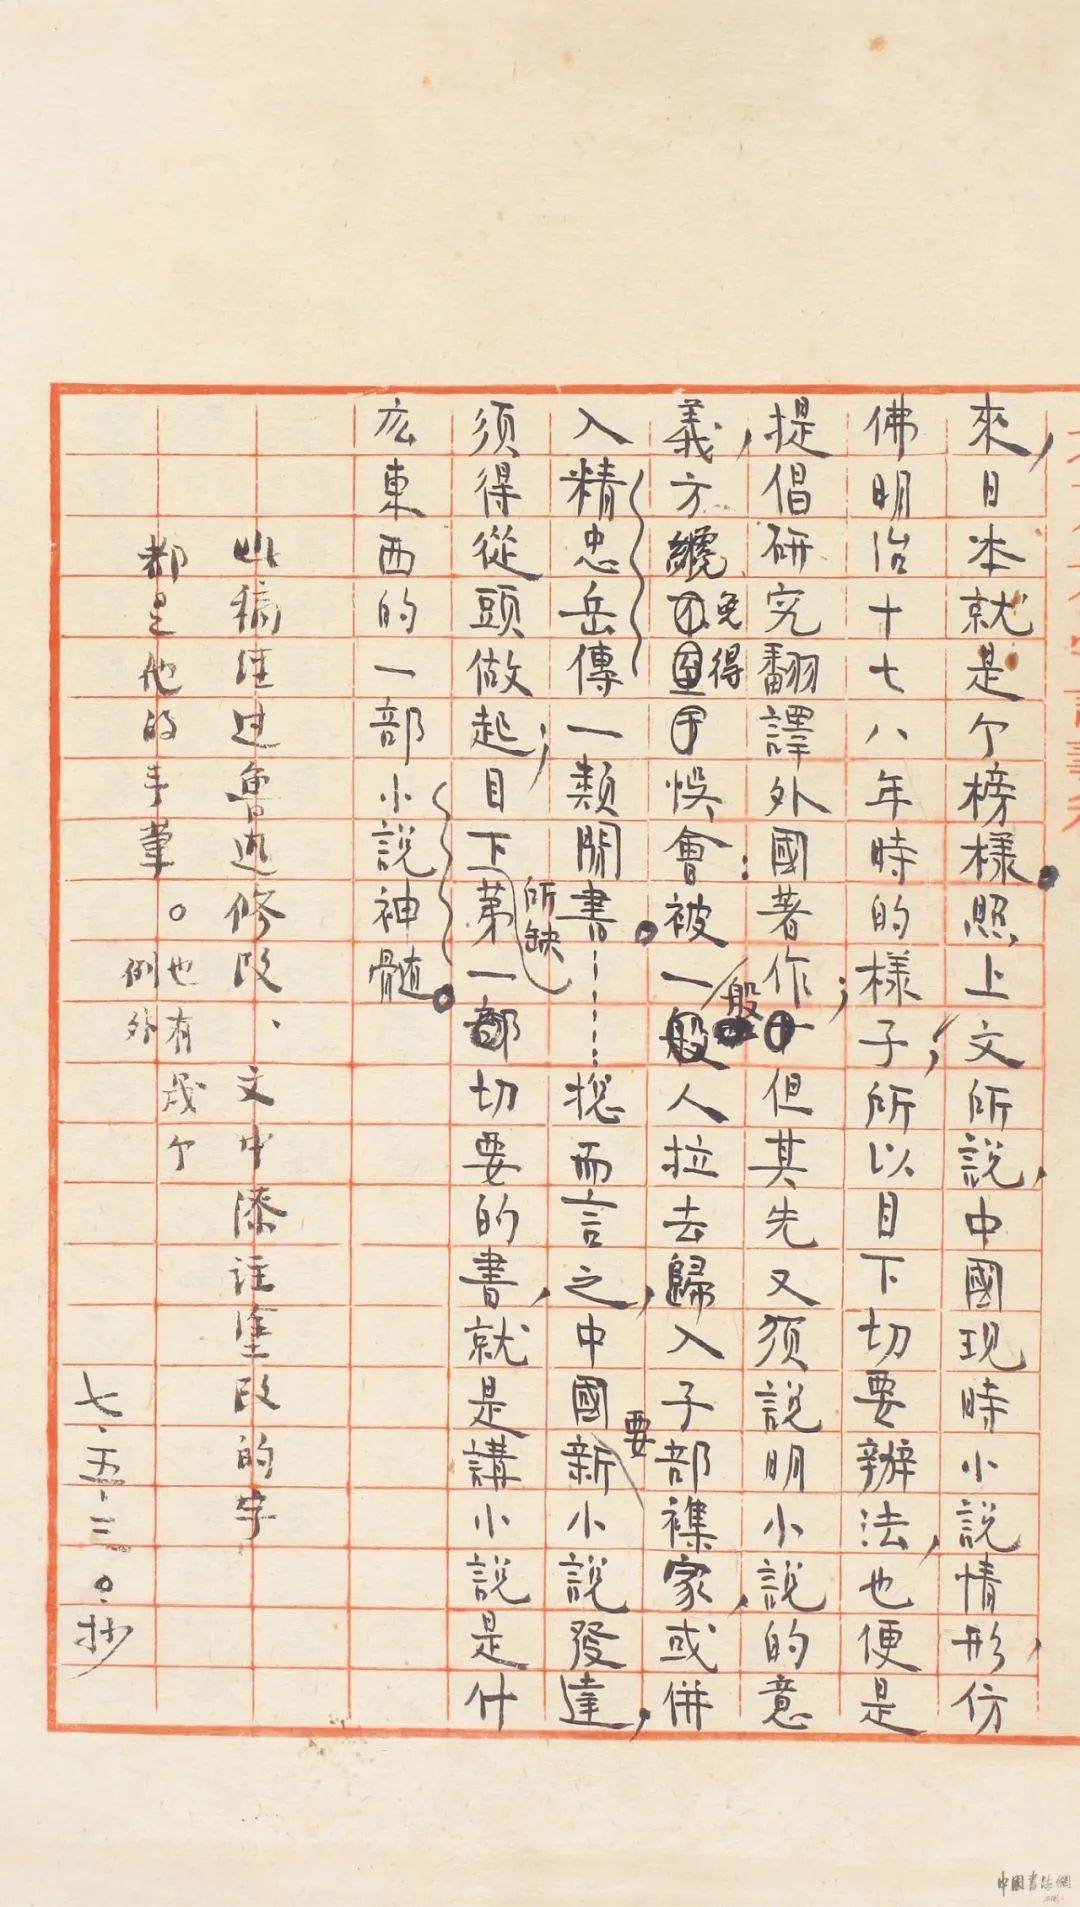 來，日本就是个榜樣。照上文所說，中國現時小說情形，仿
佛明治十七八年時的樣子；所以目下切要辦法，也便是
提倡研究翻譯外國著作；但其先又須說明小說的意
義，方纔免得悞會：被一般般人拉去歸入子部襍家，或併
入精忠岳傳一類閒書。……摠而言之，中國要新小說發達，
須得從頭做起；目下所缺第一部切要的書，就是講小說是什
庅東西的一部小說神髓。
此稿经过魯迅修改、文中添註塗改的字
都是他的手筆。也有幾个
例外
七.五.三〇.抄
中國書法網